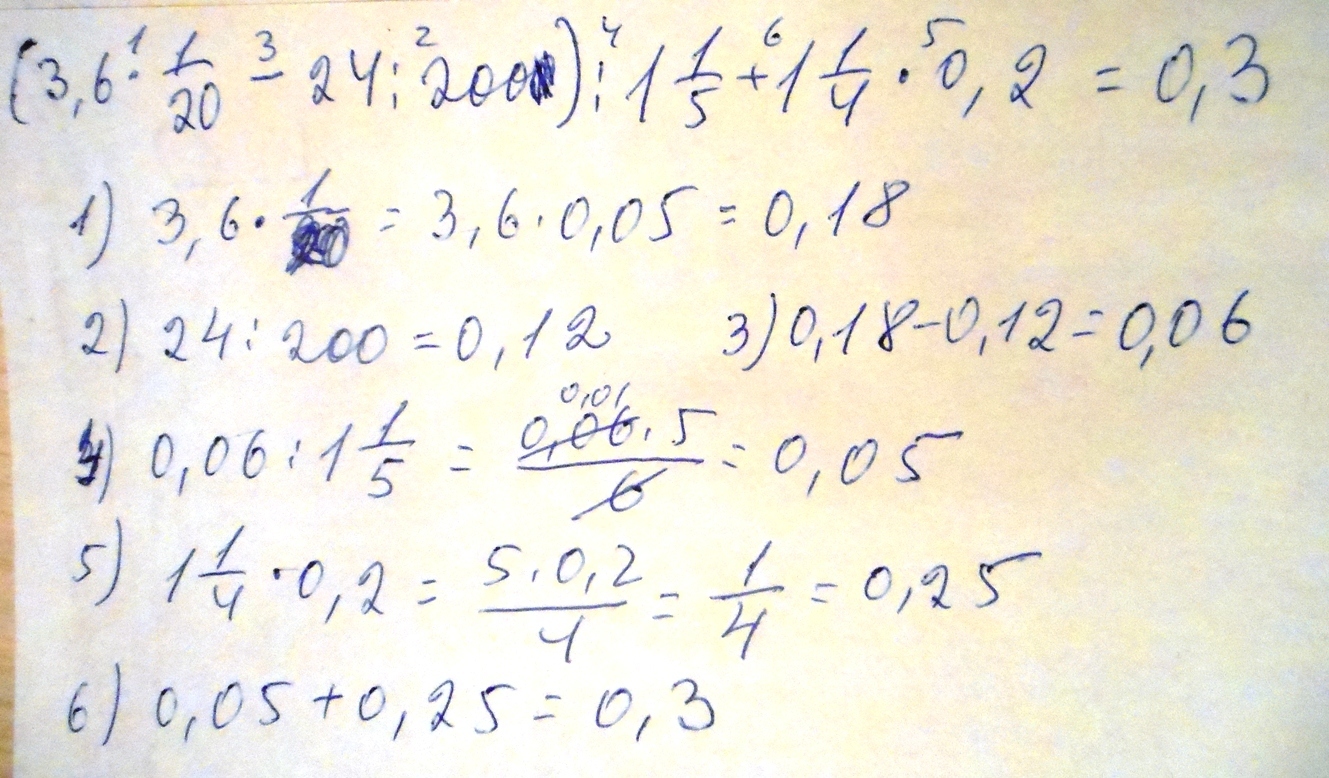 (3,6 · 1/20 - 24 : 200) : 1 1/5 + 1 1/4 · 0,2 = 0,3
1) 3,6 · 1/20 = 3,6 · 0,05 = 0,18
2) 24 : 200 = 0,12 3) 0,18 - 0,12 = 0,06
4) 0,06 : 1 1/5 = 0,06 · 5 / 6 = 0,05
5) 1 1/4 · 0,2 = 5 · 0,2 / 4 = 1/4 = 0,25
6) 0,05 + 0,25 = 0,3